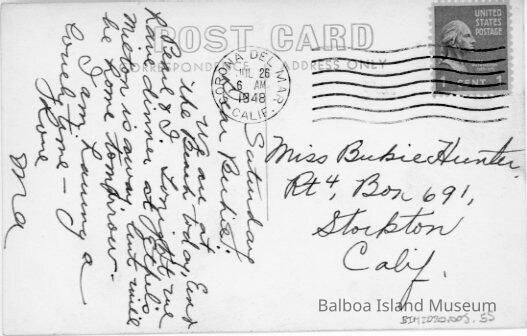 POST CARD
CORRESPONDENCE ADDRESS ONLY
CORONA DEL MAR
JUL 26
6 AM
1948
CALIF.
UNITED STATES POSTAGE
1 CENT 1
Saturday
Dear Bukie:
We are at
the Beach today, Earl
Pearl & I. Tonight we
have dinner at Ethel's
Melvin is away but will
be home tomorrow.
I am having a
lovely time –
Love
Ma
Miss Bukie Hunter
Rt 4, Box 691,
Stockton
Calif.
Balboa Island Museum